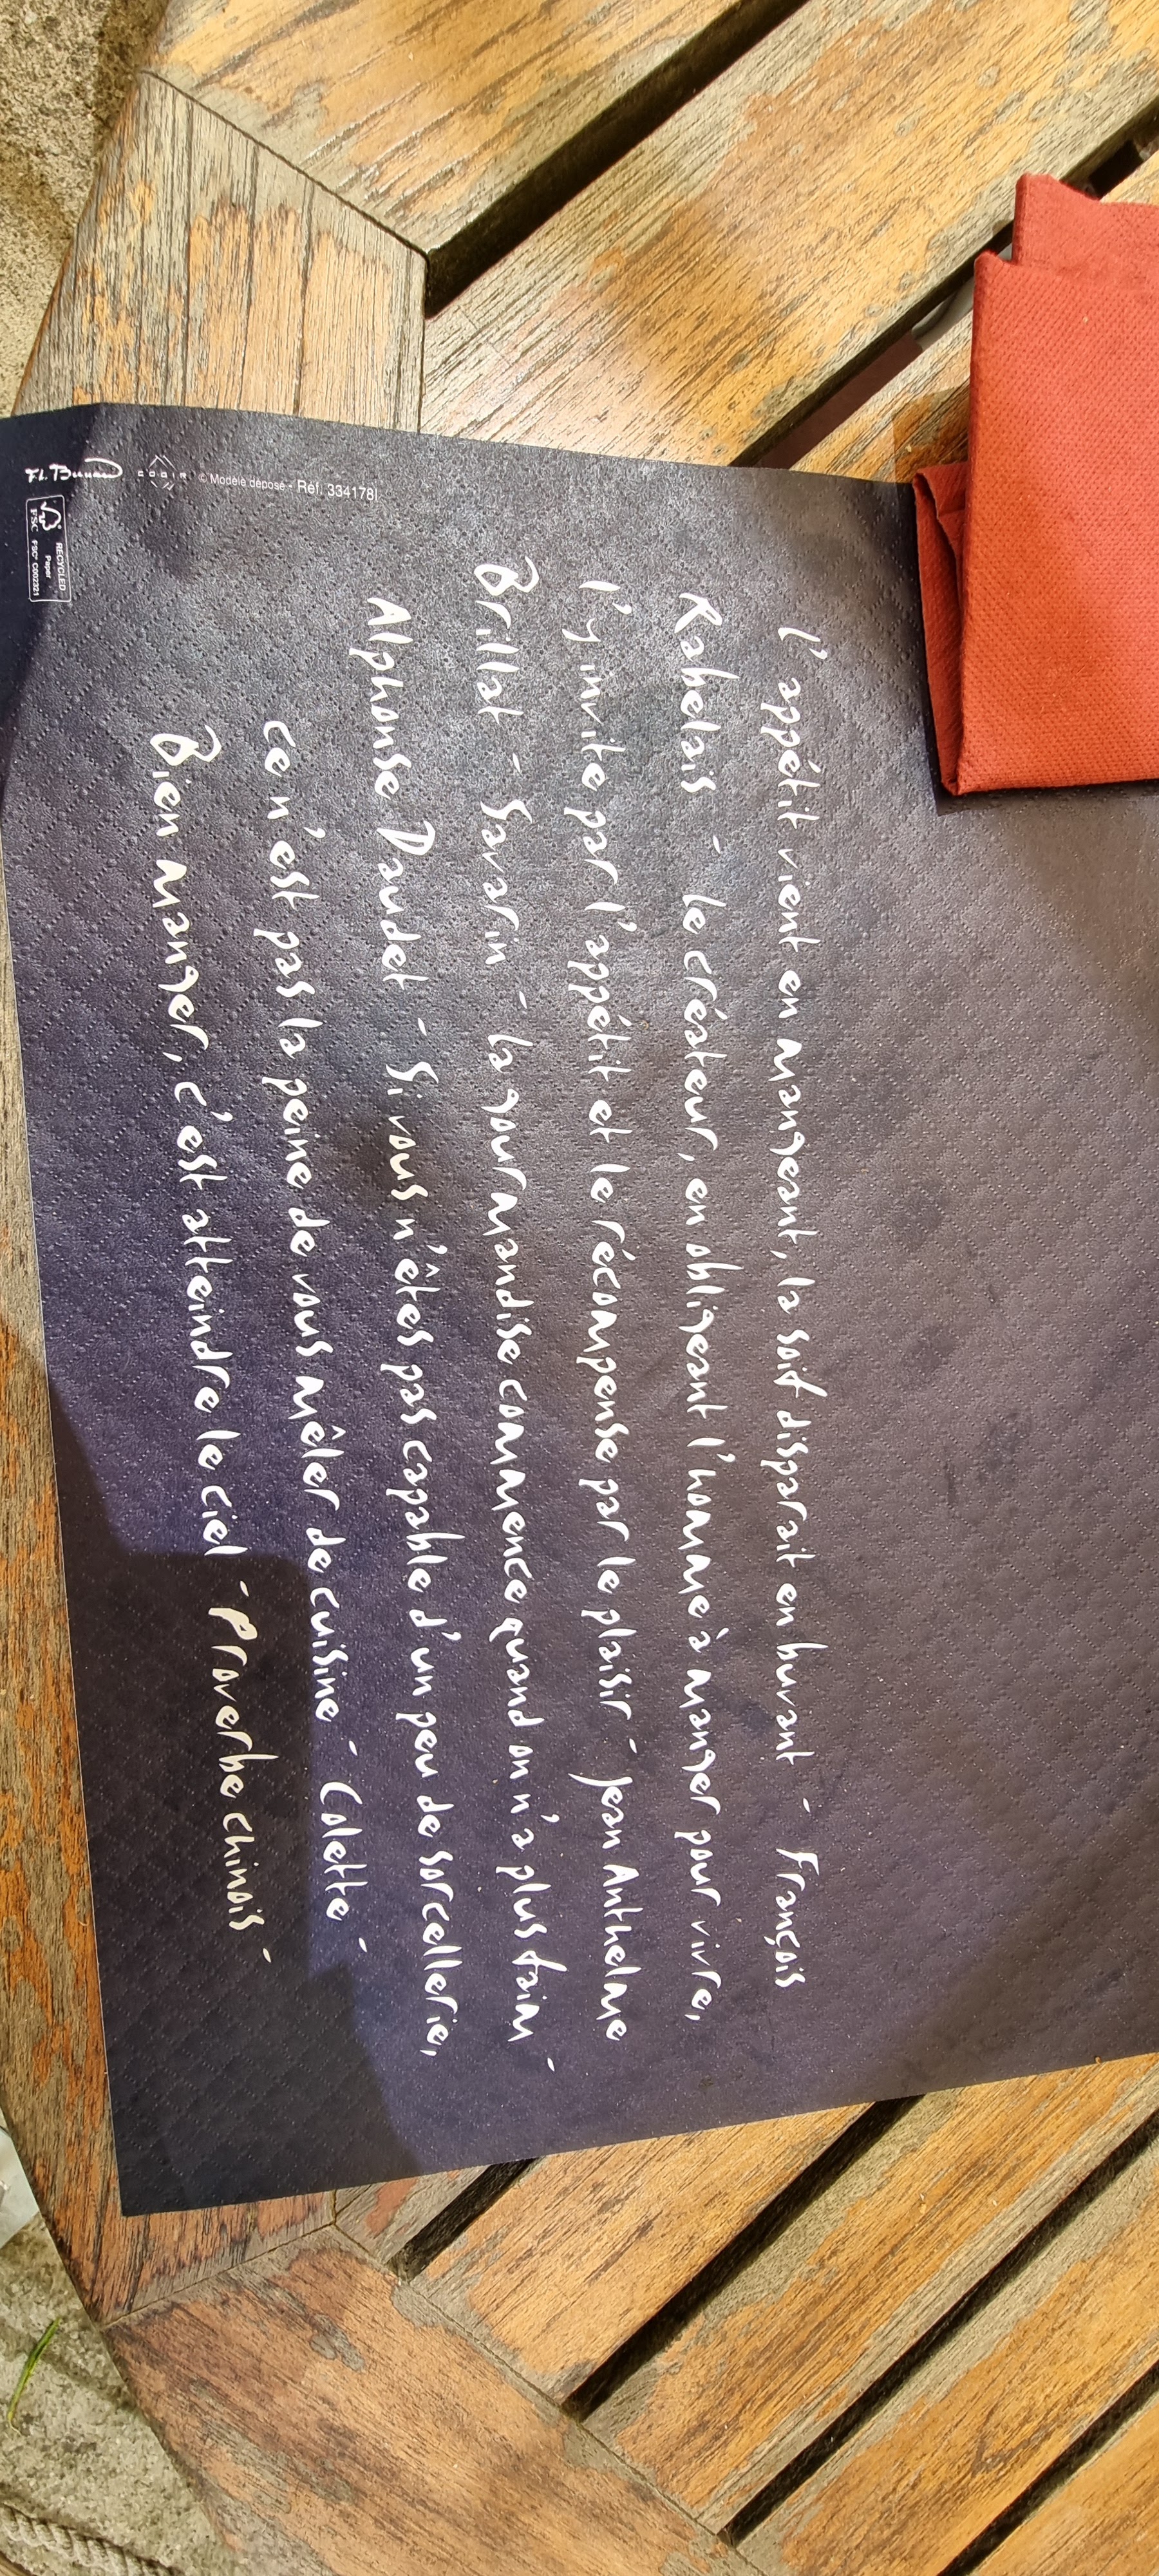 L'appétit vient en mangeant, la soif disparait en buvant - François
Rabelais - Le créateur, en obligeant l'homme à manger pour vivre,
l'y invite par l'appétit et le récompense par le plaisir - Jean Anthelme
Brillat - Savarin - La gourmandise commence quand on n'a plus faim -
Alphonse Daudet - Si vous n'êtes pas capable d'un peu de sorcellerie,
ce n'est pas la peine de vous mêler de cuisine - Colette -
Bien manger, c'est atteindre le ciel - Proverbe chinois -
© Modèle déposé - Réf. 334178
RECYCLED
Paper
FSC FSC® C002321